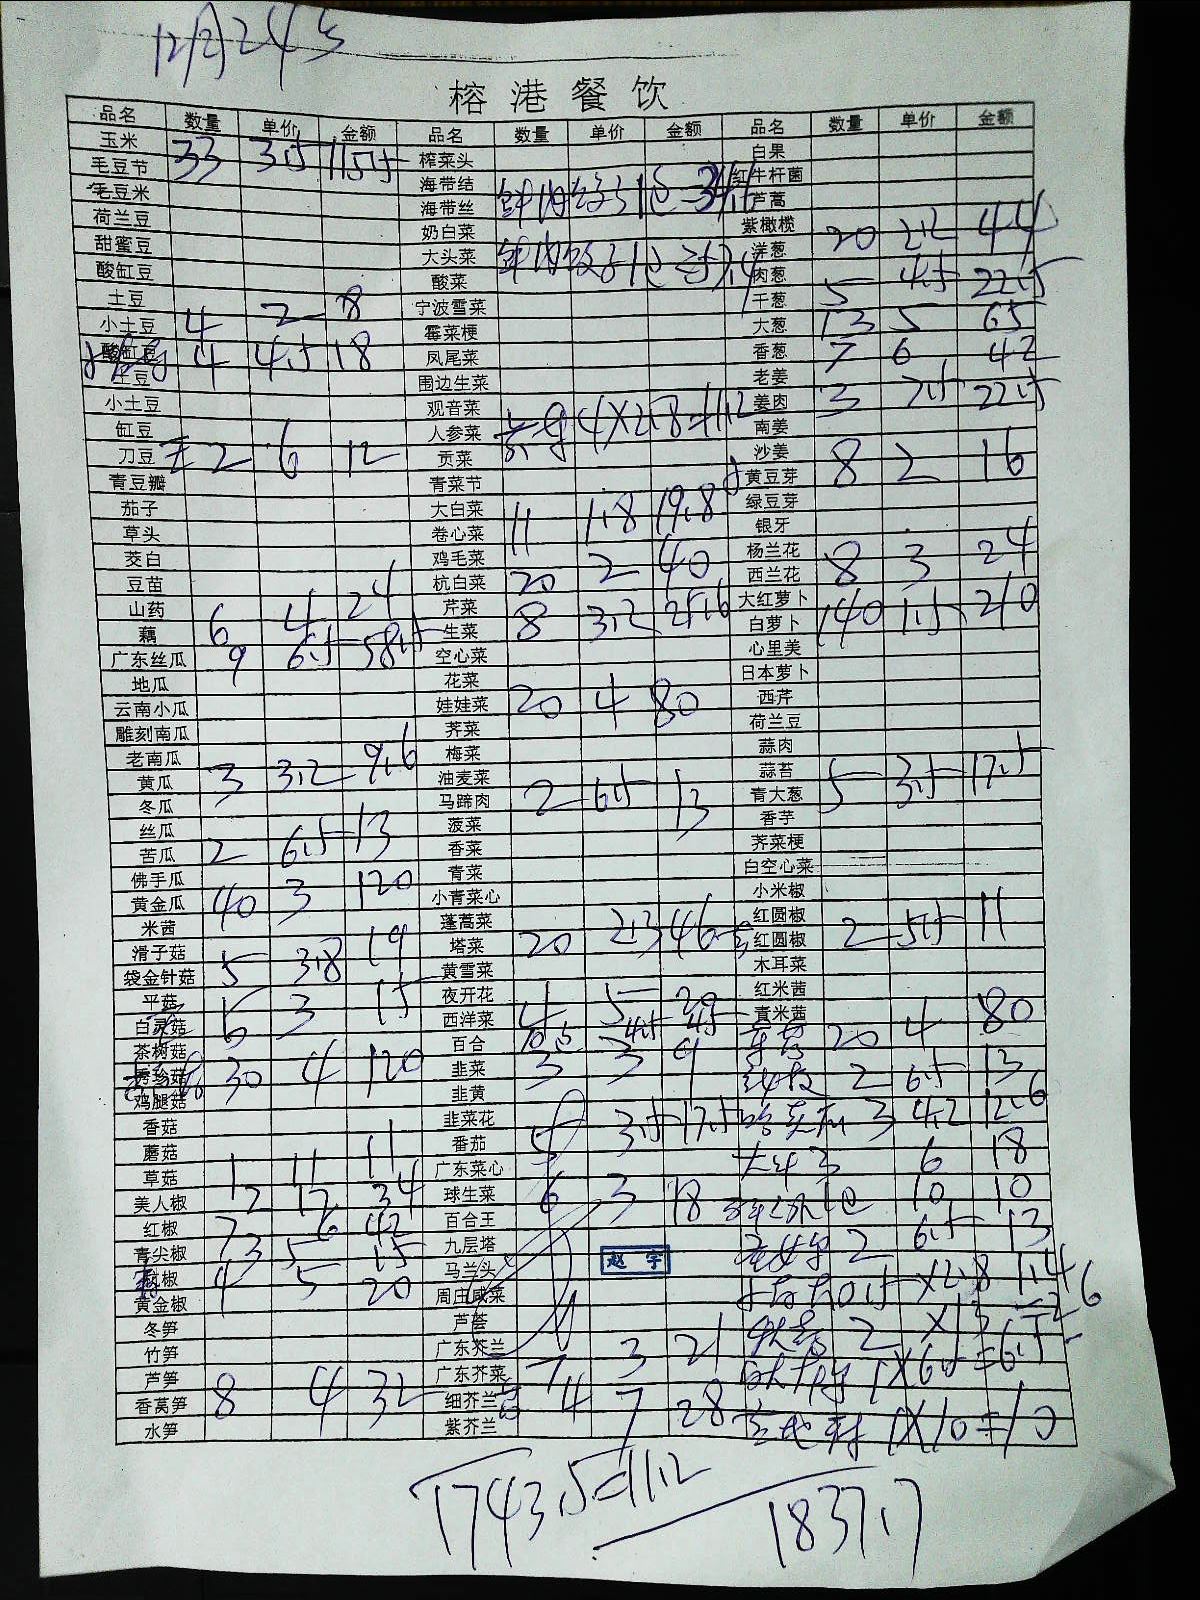 12月24号
榕港餐饮
品名 数量 单价 金额 品名 数量 单价 金额 品名 数量 单价 金额
玉米 33 3.5 115.5 榨菜头 白果
毛豆节 海带结 红牛杆菌
毛豆米 海带丝 鲜肉 1包 芦蒿
荷兰豆 奶白菜 紫橄榄 20 2.2 44
甜蜜豆 大头菜 鲜肉饺子1包 洋葱
酸缸豆 酸菜 肉葱 5 4.5 22.5
土豆 4 2 8 宁波雪菜 干葱
小土豆 霉菜梗 大葱 13 5 65
酸缸豆 4 4.5 18 凤尾菜 香葱 7 6 42
土豆 围边生菜 老姜 3 7.5 22.5
小土豆 观音菜 姜肉
缸豆 人参菜 4X2.8=11.2 南姜
刀豆 2 6 12 贡菜 沙姜
青豆瓣 青菜节 黄豆芽 8 2 16
茄子 大白菜 11 1.8 19.8 绿豆芽
草头 卷心菜 银牙
茭白 鸡毛菜 20 2 40 杨兰花
豆苗 杭白菜 西兰花 8 3 24
山药 6 4 24 芹菜 8 3.2 25.6 大红萝卜
藕 9 6.5 58.5 生菜 白萝卜 140 1.5 210
广东丝瓜 空心菜 心里美
地瓜 花菜 20 4 80 日本萝卜
云南小瓜 娃娃菜 西芹
雕刻南瓜 荠菜 荷兰豆
老南瓜 梅菜 蒜肉
黄瓜 3 3.2 9.6 油麦菜 2 6.5 13 蒜苔 5 3.5 17.5
冬瓜 马蹄肉 青大葱
丝瓜 菠菜 香芋
苦瓜 2 6.5 13 香菜 荠菜梗
佛手瓜 青菜 白空心菜
黄金瓜 40 3 120 小青菜心 小米椒
米茜 蓬蒿菜 红圆椒
滑子菇 塔菜 20 2.3 46 红圆椒 2 5.5 11
袋金针菇 5 3.8 19 黄雪菜 木耳菜
平菇 夜开花 4 5 20 红米茜
白灵菇 5 3 15 西洋菜 青米茜
茶树菇 百合 10 4.5 45 20 4 80
秀珍菇 30 4 120 韭菜 3 3 9 2 6.5 13
鸡腿菇 韭黄 3 4.2 12.6
香菇 韭菜花
蘑菇 番茄 5 3.5 17.5 3 6 18
草菇 1 11 11 广东菜心
美人椒 2 17 34 球生菜 6 3 18 1包 10 10
红椒 7 6 42 百合王
青尖椒 3 5 15 九层塔 赵宇 2 6.5 13
椒 4 5 20 马兰头
黄金椒 周庄咸菜 0.5 X2.8 1.4
冬笋 芦荟 2 X13 =26
竹笋 广东芥兰 7 3 21
芦笋 8 4 32 广东芥菜 1X6.5=6.5
香莴笋 细芥兰 4 7 28
水笋 紫芥兰 1X10=10
1743.5 11.2
1837.7